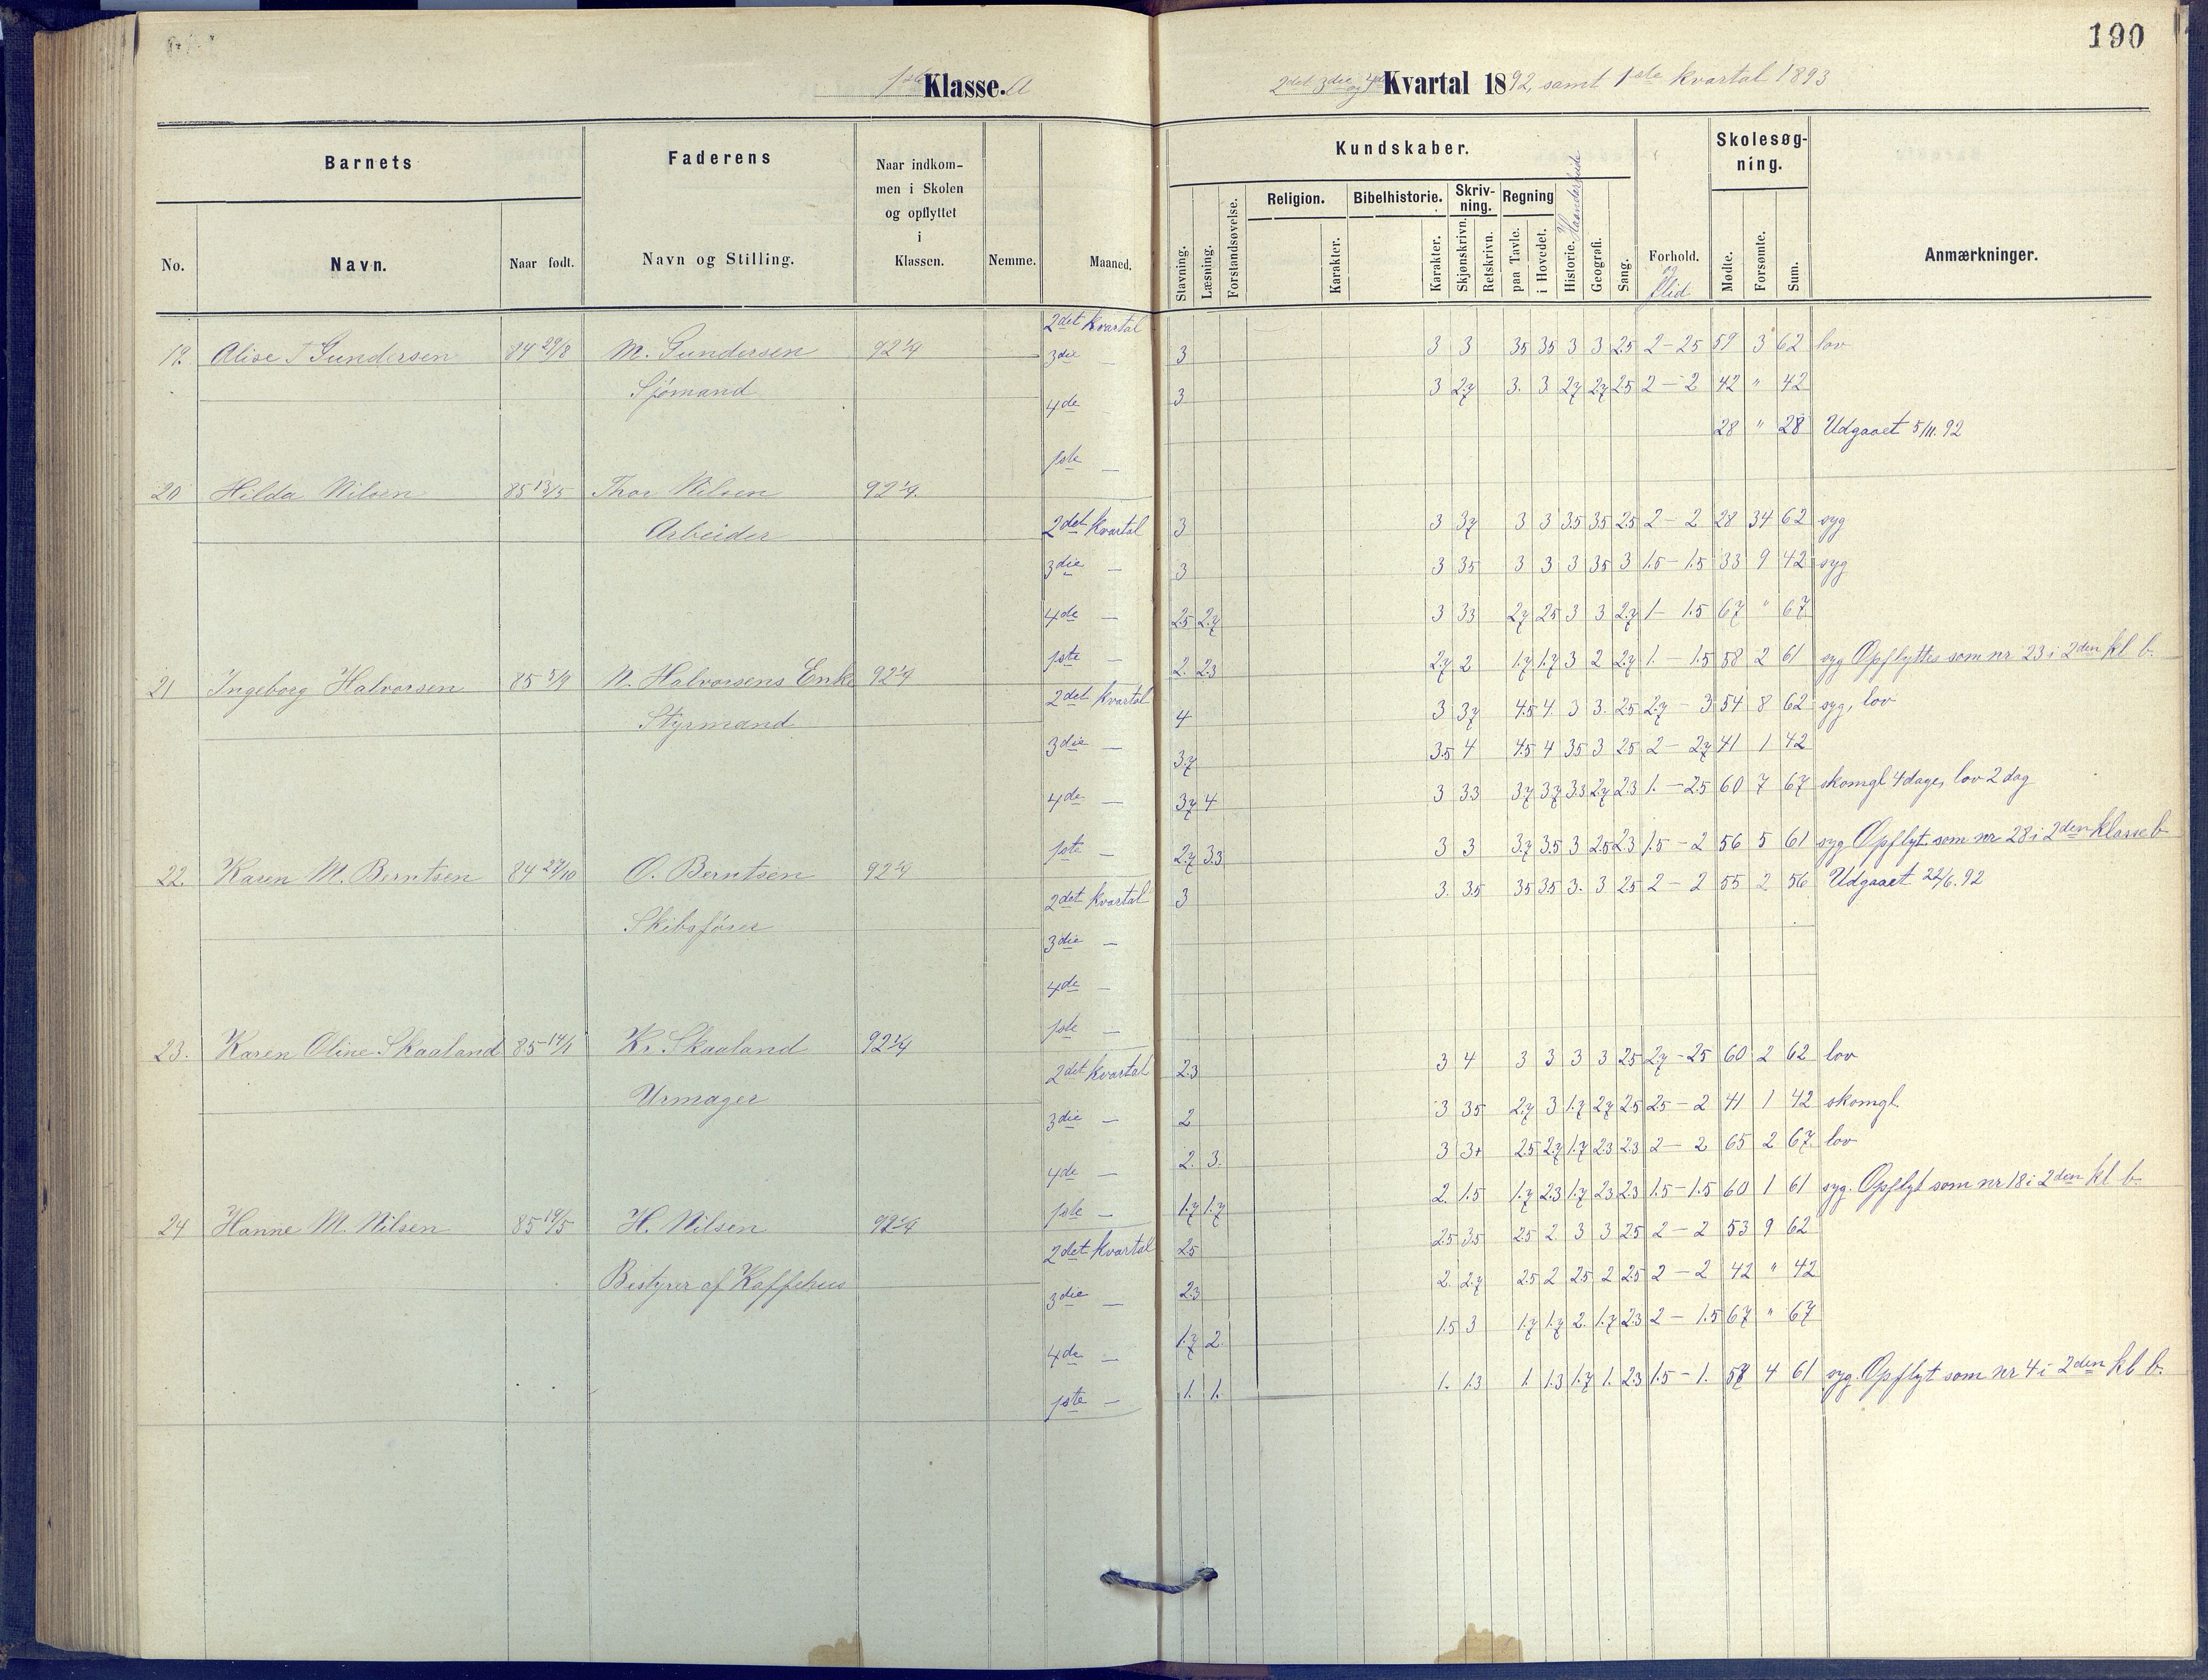 190
1ste Klasse. A
2det 3die og 4de Kvartal 1892, samt 1ste kvartal 1893
Barnets
Faderens
Naar indkommen i Skolen og opflyttet i Klassen.
Kundskaber.
Skolesøgning.
No.
Navn.
Naar født.
Navn og Stilling.
Nemme.
Maaned.
Stavning.
Læsning.
Forstandsøvelse.
Religion.
Karakter.
Bibelhistorie.
Karakter.
Skrivning.
Skjønskrivn.
Retskrivn.
Regning
paa Tavle.
i Hovedet.
Historie. Haandarbeide
Geografi.
Sang.
Forhold. og Flid
Mødte.
Forsømte.
Sum.
Anmærkninger.
19. Alise T Gundersen 84 29/8 M. Gundersen 92 1/4
Sjømand
2det kvartal 3 3 3 35 35 3 3 25 2-25 59 3 62 lov
3die — 3 3 27 3. 3 27 27 25 2-2 42 " 42
4de 28 " 28 Udgaaet 5/11. 92
1ste —
20 Hilda Nilsen 85 13/5 Thor Nilsen 92 1/4.
Arbeider
2det kvartal 3 3 37 3 3 35 35 25 2-2 28 34 62 syg
3die — 3 3 35 3 3 3 35 3 1.5-1.5 33 9 42 syg
4de — 25 27 3 33 27 25 3 3 27 1-1.5 67 " 67.
1ste — 2. 23 27 2 1.7 1.7 3 2 27 1.-1.5 58 2 61 syg Opflyttes som nr 23 i 2den kl b.
21 Ingeborg Halvorsen 85 5/9 N. Halvorsens Enke 92 1/4
Styrmand
2det kvartal 4 3 37 4.5 4. 3 3. 25 27-3 54 8 62 syg, lov
3die — 37 3.5 4 4.5 4 35 3 25 2-27 41 1 42
4de — 37 4 3 33 37 37 33 27 23 1.-25 60 7 67 skomgl 4 dage, lov 2 dag
1ste — 27 33 3 3 37 35 3 25 23 1.5-2 56 5 61 syg Opflyt. som nr 28 i 2den klasse b
22. Karen M. Berntsen 84 27/10 O. Berntsen 92 1/4
Skibsfører
2det kvartal 3 3. 35 35 35 3. 3 25 2-2 55 2 56 Udgaaet 22/6. 92
3die —
4de —
1ste —
23. Karen Oline Skaaland 85 14/1 Kr. Skaaland 92 1/4
Urmager
2det kvartal 23 3 4 3 3 3 3 25 27-25 60 2 62 lov
3die — 2 3 35 27 3 1.7 27 25 25-2 41 1 42 skomgl.
4de — 2. 3. 3 3+ 25 27 1.7 23 23 2-2 65 2 67. lov
1ste — 1.7 1.7 2. 1.5 1.7 23 1.7 23 23 1.5-1.5 60 1 61 syg. Opflyt som nr 18 i 2den kl b.
24 Hanne M. Nilsen 85 19/5 H. Nilsen 92 1/4
Bestyrer af Kaffehus
2det kvartal 25 25 35 25 2. 3 3 25 2-2 53 9 62
3die — 23 2. 27 25 2 25 2 25 2-2 42 " 42
4de — 1.7 2. 1.5 3 1.7 1.7 2. 1.7 23 2-1.5 67 " 67
1ste — 1. 1. 1. 1.3 1. 1.3 1.7 1. 23 1.5-1. 57 4 61 syg. Opflyt som nr 4 i 2den kl b.